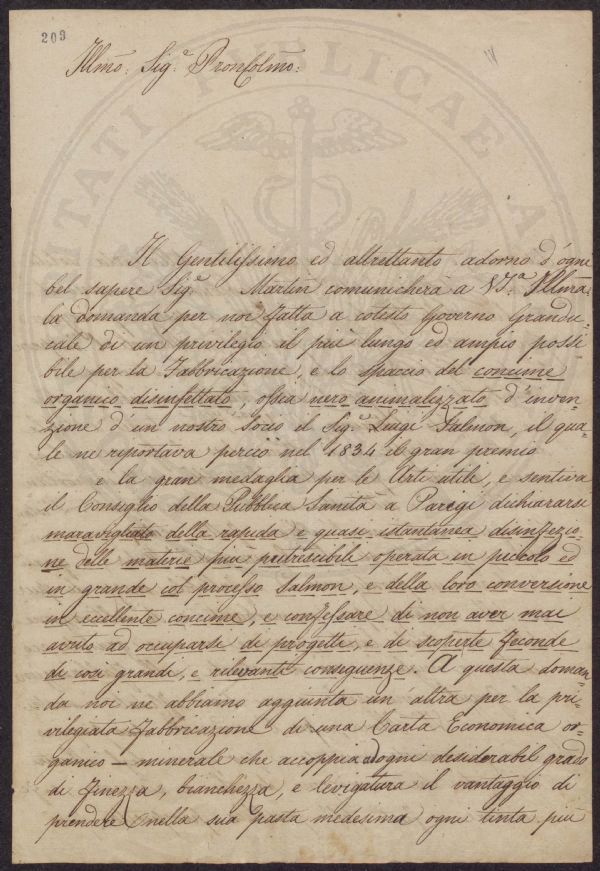 209
Illmo: Sig.e Pron Colmo:
Il Gentilissimo ed altrettanto adorno d'ogni
bel sapere Sig.e Martin comunicherà a V.S.a Illma
la domanda per noi fatta a cotesto Governo Grandu-
cale di un privilegio il più lungo ed ampio possi-
bile per la Fabbricazione, e lo spaccio del concime
organico disinfettato, ossia nero animalizzato d'inven-
zione d'un nostro socio il Sig.e Luigi Salmon, il qua-
le ne reportava perciò nel 1834 il gran premio
e la gran medaglia per le Arti utili, e sentiva
il Consiglio della Pubblica Sanità a Parigi dichiararsi
maravigliato della rapida e quasi istantanea disinfezio-
ne delle materie più putrescibile operata in piccolo ed
in grande col processo Salmon, e della loro conversione
in eccellente concime, e confessare di non aver mai
avuto ad occuparsi di progetti, e di scoperte feconde
di così grande, e rilevanti conseguenze. A questa doman-
da noi ne abbiamo aggiunta un'altra per la pri-
vilegiata fabbricazione di una Carta Economica or-
ganico-minerale che accoppia ad ogni desiderabil grado
di finezza, bianchezza, e levigatura il vantaggio di
prendere nella sua pasta medesima ogni tinta più
TATI PUBLICAE A